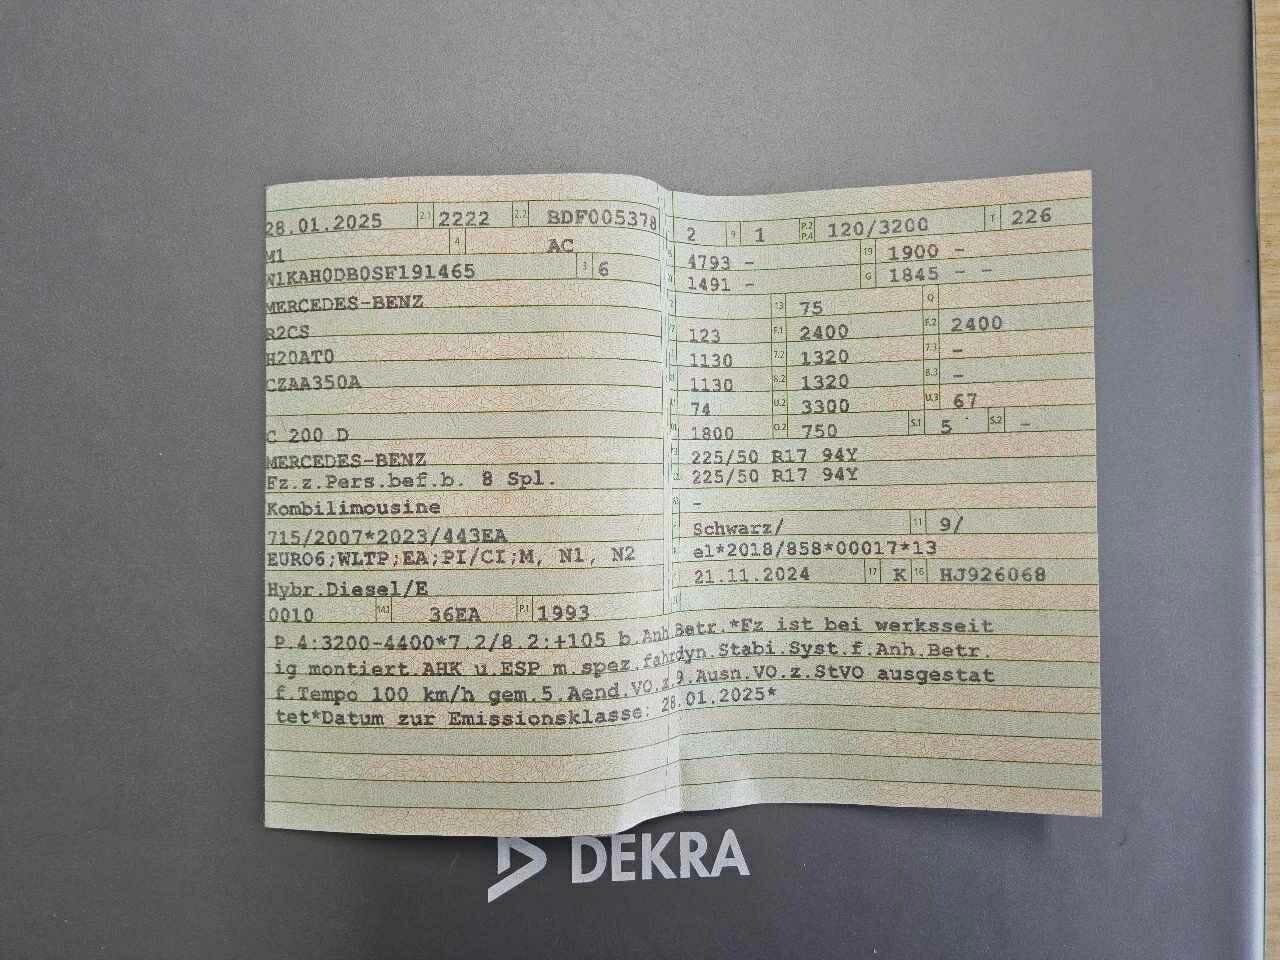 28.01.2025 2.1 2222 2.2 BDF005378
M1 4 AC
W1KAH0DB0SF191465 3 6
MERCEDES-BENZ
R2CS
H20AT0
CZAA350A
C 200 D
MERCEDES-BENZ
Fz.z.Pers.bef.b. 8 Spl.
Kombilimousine
715/2007*2023/443EA
EURO6;WLTP;EA;PI/CI;M, N1, N2
Hybr.Diesel/E
0010 14.1 36EA P.1 1993
2 9 1 P.2 P.4 120/3200 T 226
4793 - 19 1900 -
1491 - G 1845 - -
13 75 Q
123 F.1 2400 F.2 2400
1130 7.2 1320 7.3 -
1130 8.2 1320 8.3 -
74 U.2 3300 U.3 67
1800 O.2 750 S.1 5 S.2 -
225/50 R17 94Y
225/50 R17 94Y
-
Schwarz/ 11 9/
e1*2018/858*00017*13
21.11.2024 17 K 16 HJ926068
P.4:3200-4400*7.2/8.2:+105 b.Anh.Betr.*Fz ist bei werksseit
ig montiert.AHK u.ESP m.spez.fahrdyn.Stabi.Syst.f.Anh.Betr.
f.Tempo 100 km/h gem.5.Aend.VO.z.9.Ausn.VO.z.StVO ausgestat
tet*Datum zur Emissionsklasse: 28.01.2025*
DEKRA